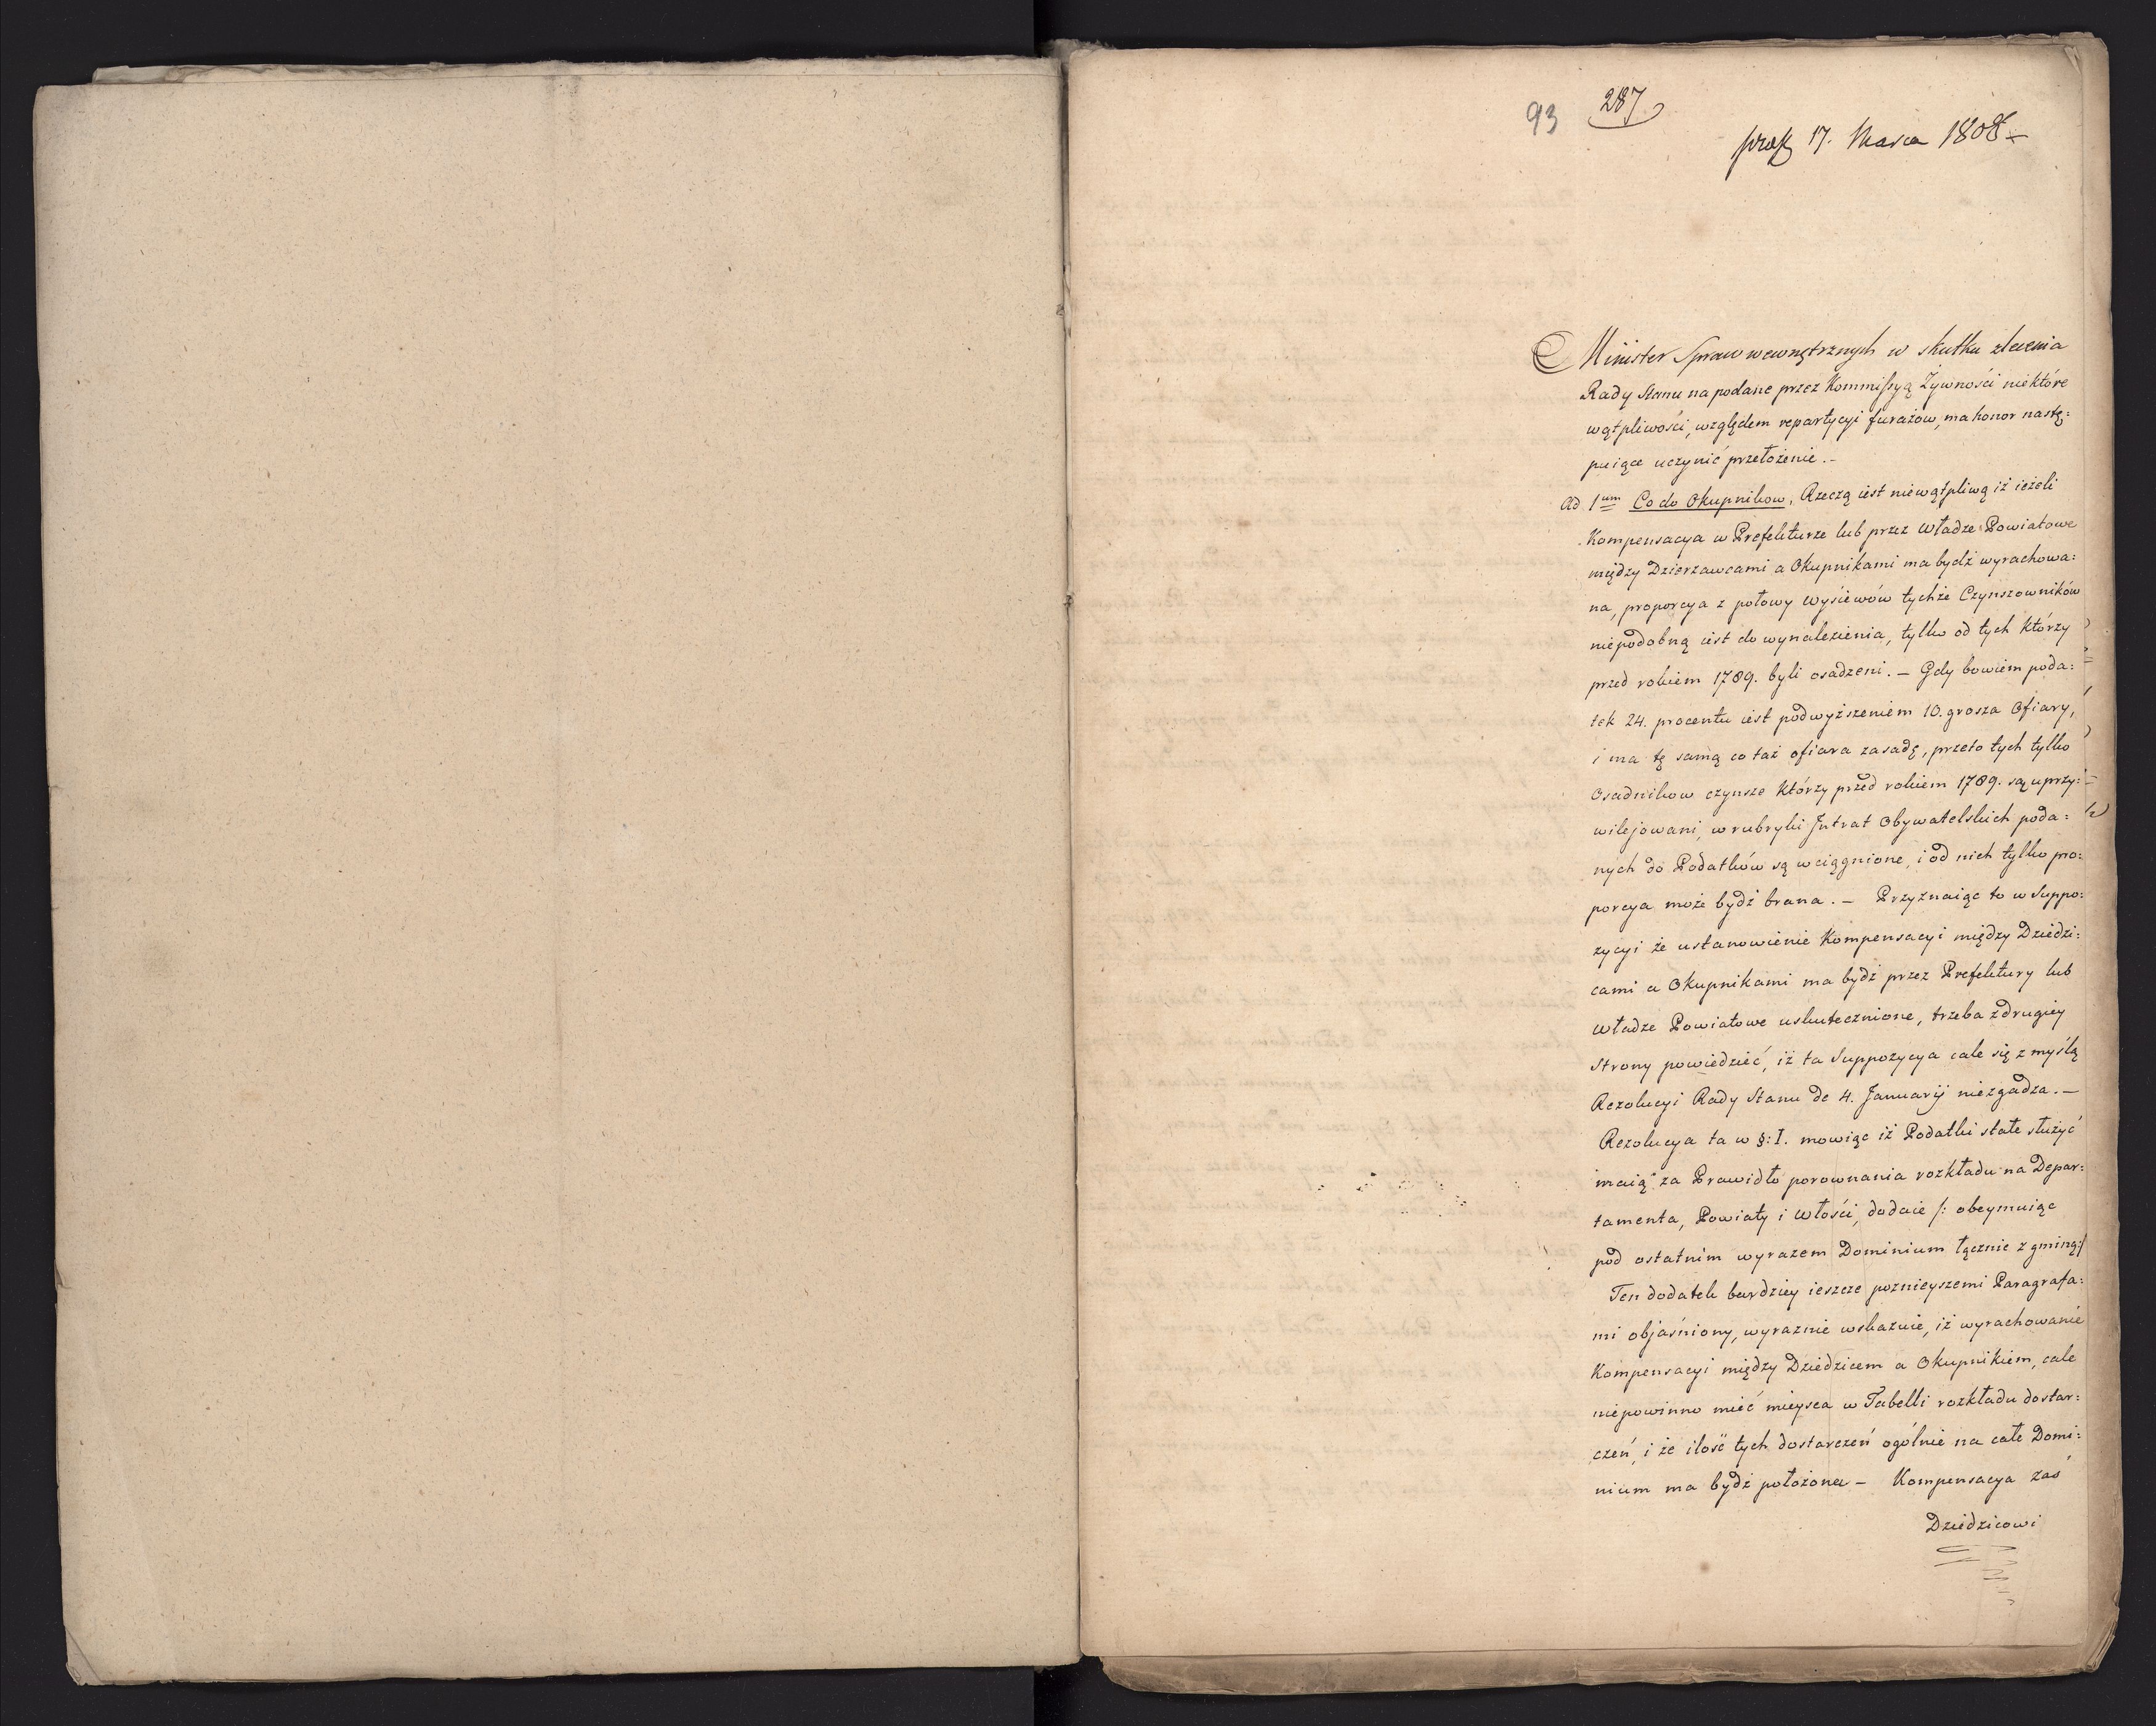 93
287
praes 17. Marca 1808
Minister Spraw wewnętrznych w skutku zlecenia
Rady Stanu na podane przez Kommissyą Żywności niektóre
wątpliwości, względem repartycyi furażow, ma honor nastę:
puiące uczynić przełożenie. -
Ad 1um Co do Okupnikow, Rzeczą iest niewątpliwą iż ieżeli
Kompensacya w Prefekturze lub przez Władze Powiatowe
między Dzierzawcami a Okupnikami ma bydź wyrachowa:
na, proporcya z połowy wysiewów tychże Czynszowników
niepodobną iest do wynalezienia, tylko od tych którzy
przed rokiem 1789. byli osadzeni. - Gdy bowiem poda:
tek 24. procentu iest podwyższeniem 10. grosza Ofiary,
i ma tę samą co taż ofiara zasadę, przeto tych tylko
Osadnikow czynsze którzy przed rokiem 1789. są uprzy:
wilejowani, w rubryki Intrat Obywatelskich poda:
nych do Podatków są wciągnione, i od nich tylko pro:
porcya może bydź brana. - Przyznaiąc to w Suppo:
zycyi że ustanowienie Kompensacyi między Dziedzi:
cami a Okupnikami ma bydź przez Prefektury lub
Władze Powiatowe uskutecznione, trzeba z drugiey
Strony powiedzieć, iż ta Suppozycya cale się z myślą
Rezolucyi Rady Stanu de 4. Januarij niezgadza. -
Rezolucya ta w §: I. mowiąc iż Podatki stałe służyć
maią za Prawidło porownania rozkładu na Depar:
tamenta, Powiaty i Włości, dodaie /: obeymuiąc
pod ostatnim wyrazem Dominium łącznie z gminą :/
Ten dodatek bardziey ieszcze poznieyszemi Paragrafa:
mi objaśniony, wyraznie wskazuie, iż wyrachowanie
Kompensacyi między Dziedzicem a Okupnikiem, cale
niepowinno mieć mieysca w Tabelli rozkładu dostar:
czeń, i że ilość tych dostarczeń ogólnie na całe Domi:
nium ma bydź położona - Kompensacya zaś
Dziedzicowi